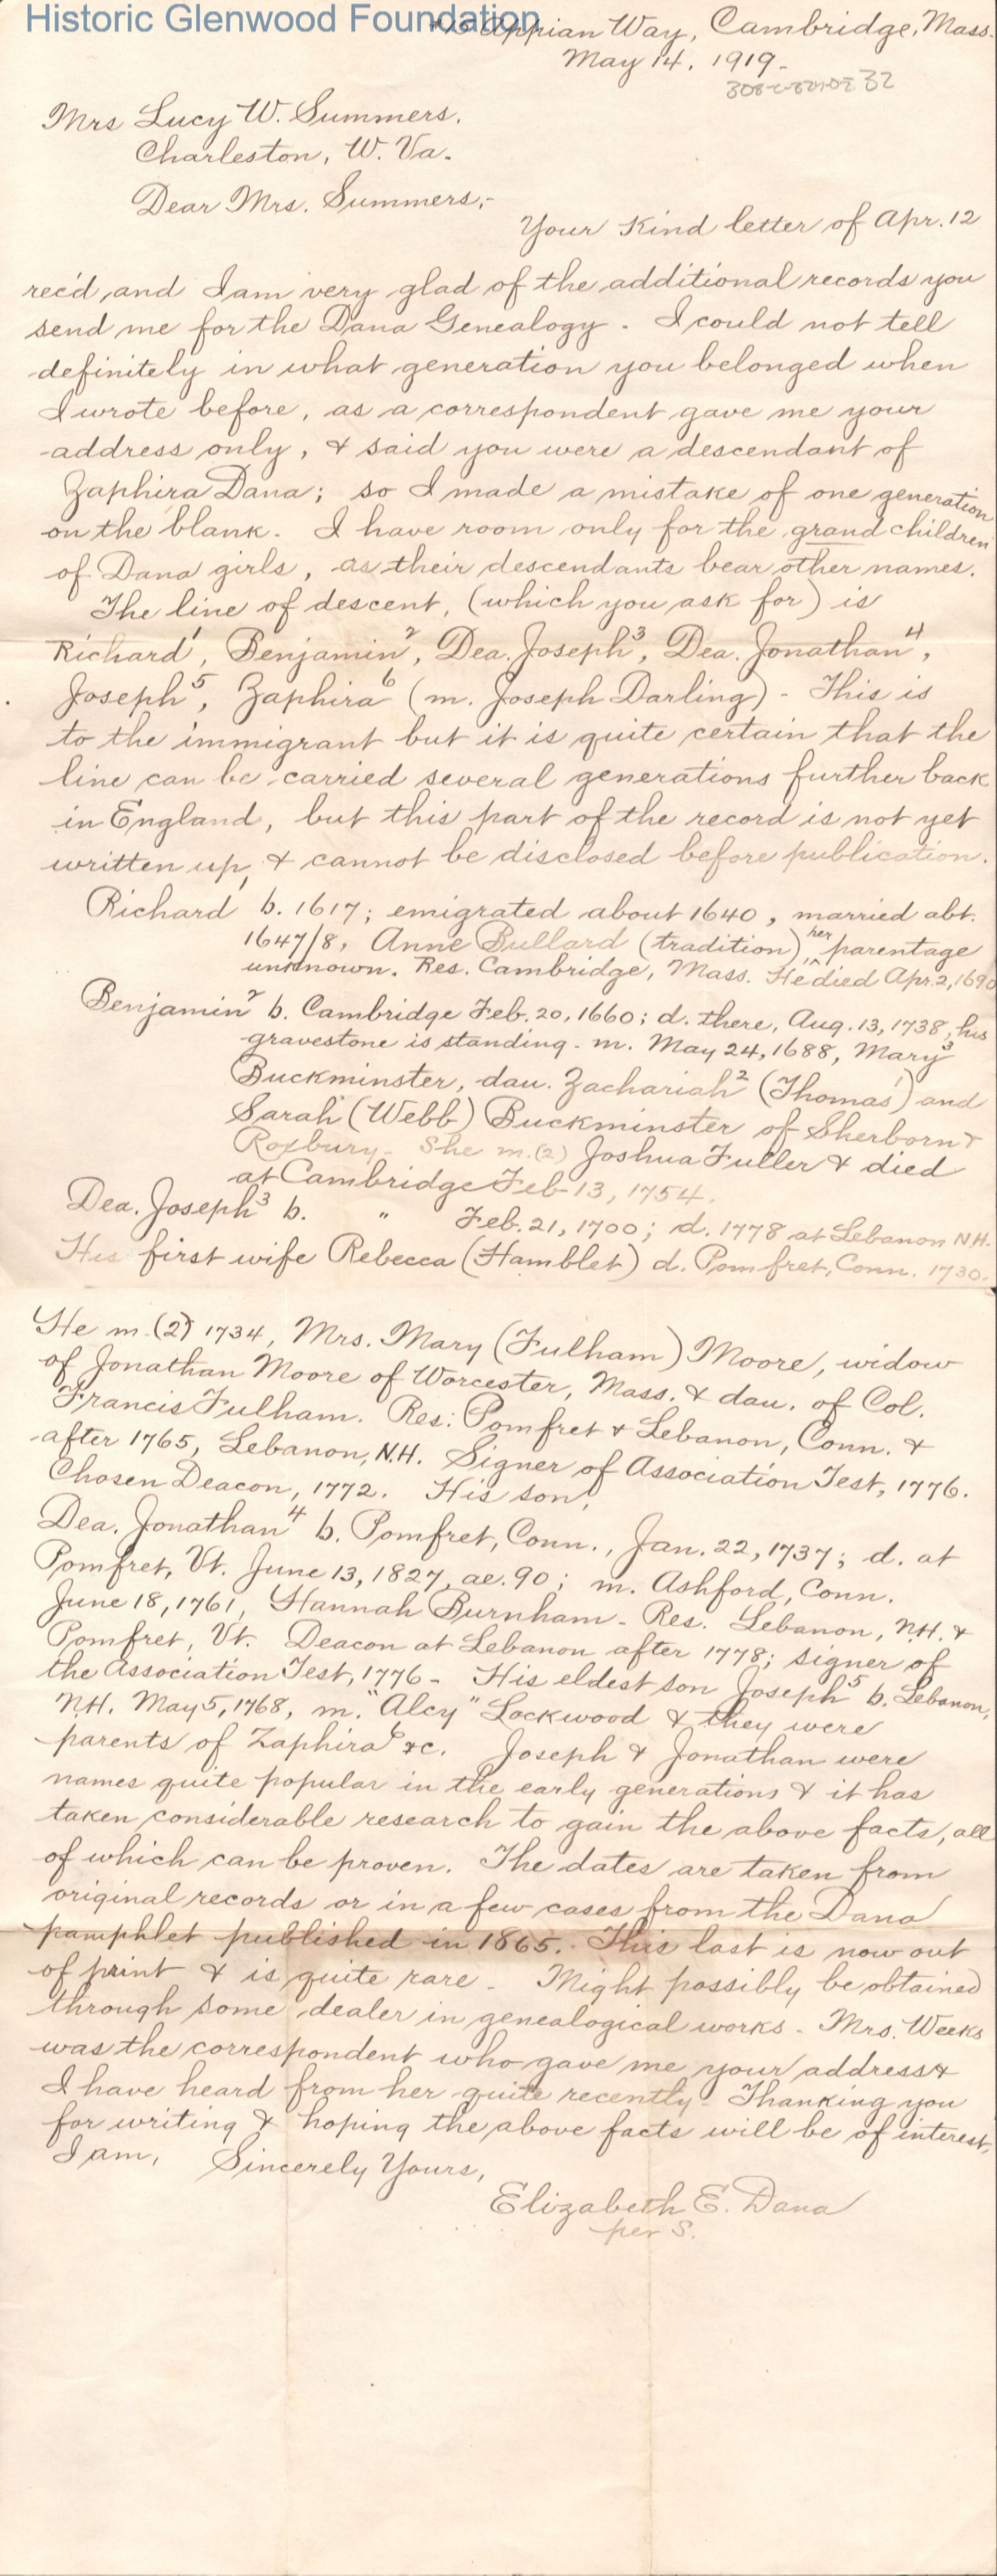 Historic Glenwood Foundation
Appian Way, Cambridge, Mass.
May 14, 1919.
32
Mrs Lucy W. Summers.
Charleston, W. Va.
Dear Mrs. Summers;-
Your Kind letter of Apr. 12
rec'd, and I am very glad of the additional records you
send me for the Dana Genealogy. I could not tell
definitely in what generation you belonged when
I wrote before, as a correspondent gave me your
address only, & said you were a descendant of
Zaphira Dana; so I made a mistake of one generation
on the blank. I have room only for the grand children
of Dana girls, as their descendants bear other names.
The line of descent, (which you ask for) is
Richard¹, Benjamin², Dea. Joseph³, Dea. Jonathan⁴,
Joseph⁵, Zaphira⁶ (m. Joseph Darling) - This is
to the immigrant but it is quite certain that the
line can be carried several generations further back
in England, but this part of the record is not yet
written up, & cannot be disclosed before publication.
Richard¹ b. 1617; emigrated about 1640, married abt.
1647/8, Anne Bullard (tradition), her parentage
unknown. Res. Cambridge, Mass. He died Apr. 2, 1690
Benjamin² b. Cambridge Feb. 20, 1660; d. there, Aug. 13, 1738, his
gravestone is standing - m. May 24, 1688, Mary³
Buckminster, dau. Zachariah² (Thomas¹) and
Sarah (Webb) Buckminster of Sherborn &
Roxbury. She m. (2) Joshua Fuller & died
at Cambridge Feb 13, 1754.
Dea. Joseph³ b. " Feb. 21, 1700; d. 1778 at Lebanon N.H.
His first wife Rebecca (Hamblet) d. Pomfret, Conn. 1730.
He m. (2) 1734, Mrs. Mary (Fulham) Moore, widow
of Jonathan Moore of Worcester, Mass. & dau. of Col.
Francis Fulham. Res: Pomfret & Lebanon, Conn. &
after 1765, Lebanon, N.H. Signer of Association Test, 1776.
Chosen Deacon, 1772. His son,
Dea. Jonathan⁴ b. Pomfret, Conn., Jan. 22, 1737; d. at
Pomfret, Vt. June 13, 1827, ae. 90; m. Ashford, Conn.
June 18, 1761, Hannah Burnham - Res. Lebanon, N.H. &
Pomfret, Vt. Deacon at Lebanon after 1778; signer of
the Association Test, 1776 - His eldest son Joseph⁵ b. Lebanon,
N.H. May 5, 1768, m. "Alcy" Lockwood & they were
parents of Zaphira⁶ &c. Joseph & Jonathan were
names quite popular in the early generations & it has
taken considerable research to gain the above facts, all
of which can be proven. The dates are taken from
original records or in a few cases from the Dana
pamphlet published in 1865. This last is now out
of print & is quite rare - Might possibly be obtained
through some dealer in genealogical works - Mrs. Weeks
was the correspondent who gave me your address &
I have heard from her quite recently. Thanking you
for writing & hoping the above facts will be of interest,
I am, Sincerely Yours,
Elizabeth E. Dana
per S.